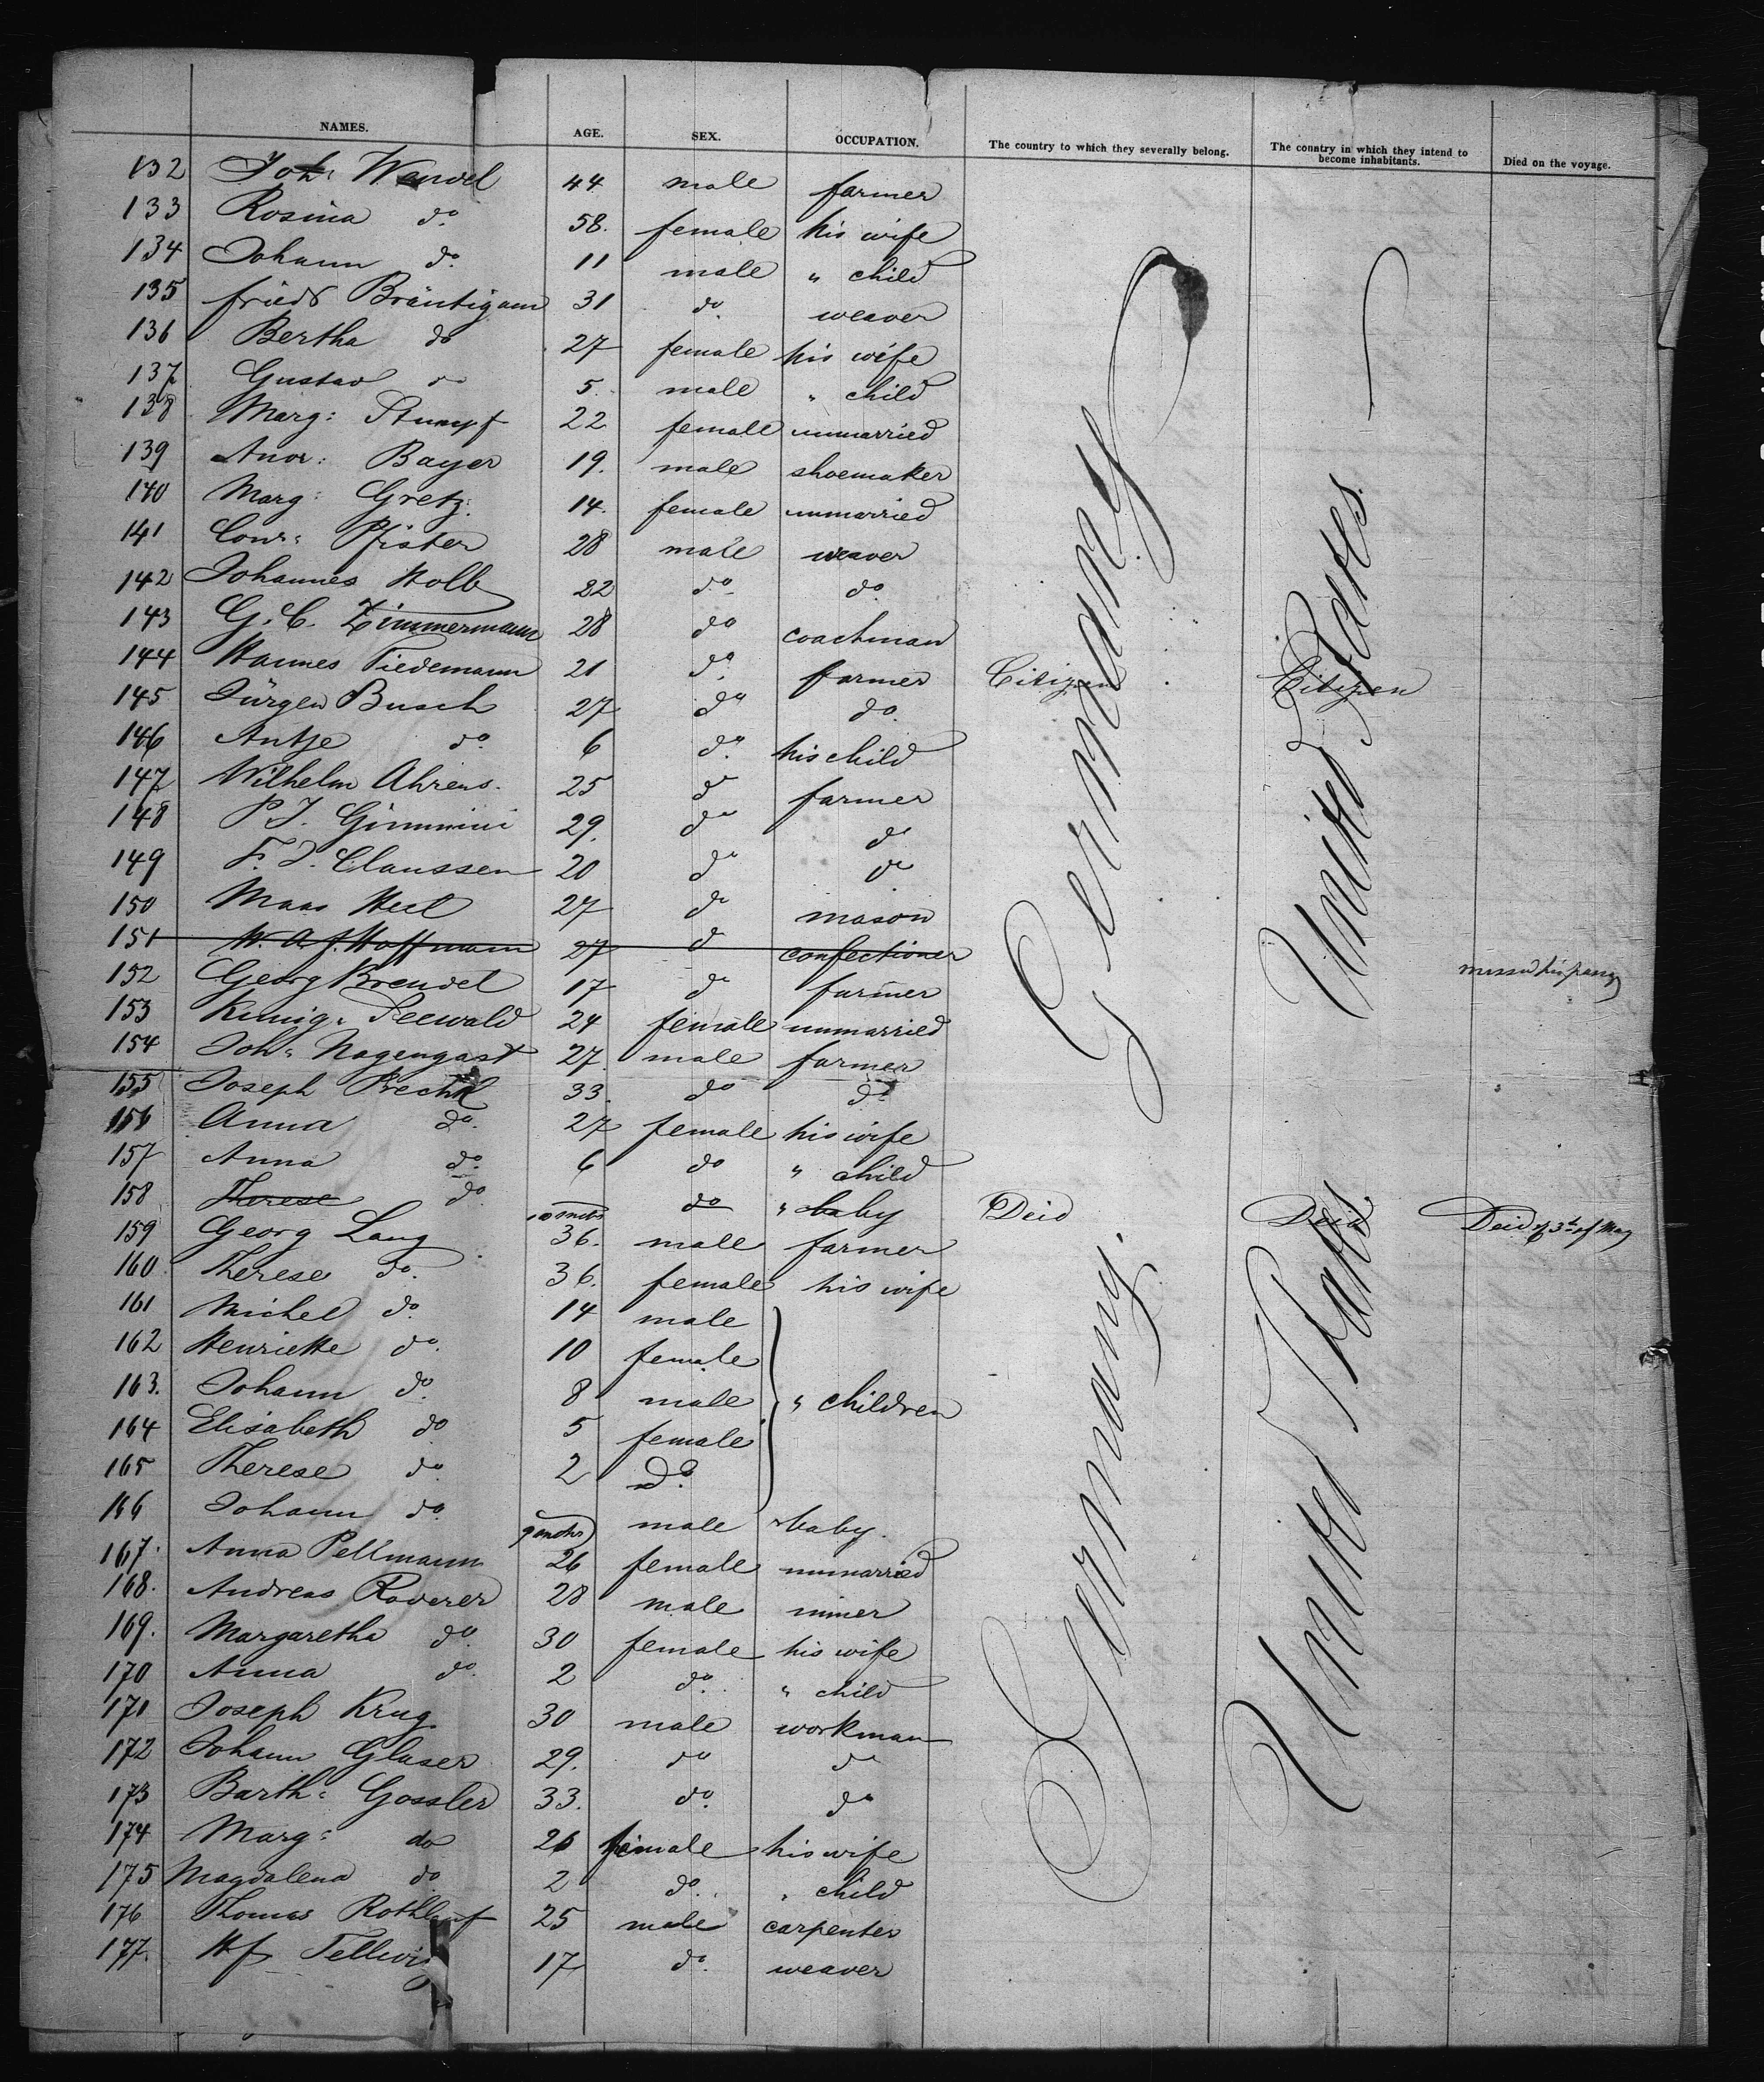 NAMES. AGE. SEX. OCCUPATION. The country to which they severally belong. The country in which they intend to become inhabitants. Died on the voyage.
132 Joh: Wendel 44 male farmer
133 Rosina do. 58. female his wife
134 Johann do. 11 male " child
135 friedr Bräutigam 31 do. weaver
136 Bertha do 27 female his wife
137 Gustav do 5. male " child
138 Marg: Stumpf 22 female unmarried
139 Andr: Bayer 19. male shoemaker
140 Marg: Gretz. 14. female unmarried
141 Conr: Pfister 28 male weaver
142 Johannes Kolb 22 do. do.
143 G. C. Zimmermann 28 do coachman
144 Hannes Tiedemann 21 do. farmer Citizen Citizen
145 Jürgen Busch 27 do do.
146 Antje do. 6 do. his child
147 Wilhelm Ahrens. 25 do farmer
148 P. J. Gimmini 29. do do
149 F. J. Claussen 20 do do
150 Maas Heel 27 do mason
151 W. A. f. Hoffmann 27 do confectioner
152 Georg Brendel 17 do farmer missed his passg
153 Kunig: Seewald 24 female unmarried
154 Joh: Nagengast 27. male farmer
155 Joseph Prechtl 33. do do.
156 Anna do. 27 female his wife
157 Anna do. 6 do " child
158 Therese do 10 mths do " baby Deid Deid Deid of 3th of May
159 Georg Lang 36. male farmer
160 Therese do. 36. female his wife
161 Michel do. 14 male
162 Henriette do. 10 female
163. Johann do. 8 male " children
164 Elisabeth do 5 female
165 Therese do. 2 Do.
166 Johann do. 9 mths male " baby.
167. Anna Pellmann 26 female unmarried
168. Andreas Roderer 28 male miner
169. Margaretha do. 30 female his wife
170 Anna do. 2 do. " child
171 Joseph Krug 30 male workman
172 Johann Glaser 29. do do
173 Barth: Gossler 33. do. do
174 Marg: do 26 female his wife
175 Magdalena do 2 do. " child
176 Thomas Rothlauf 25 male carpenter
177. 17 do. weaver
Germany
United States
Germany.
United States